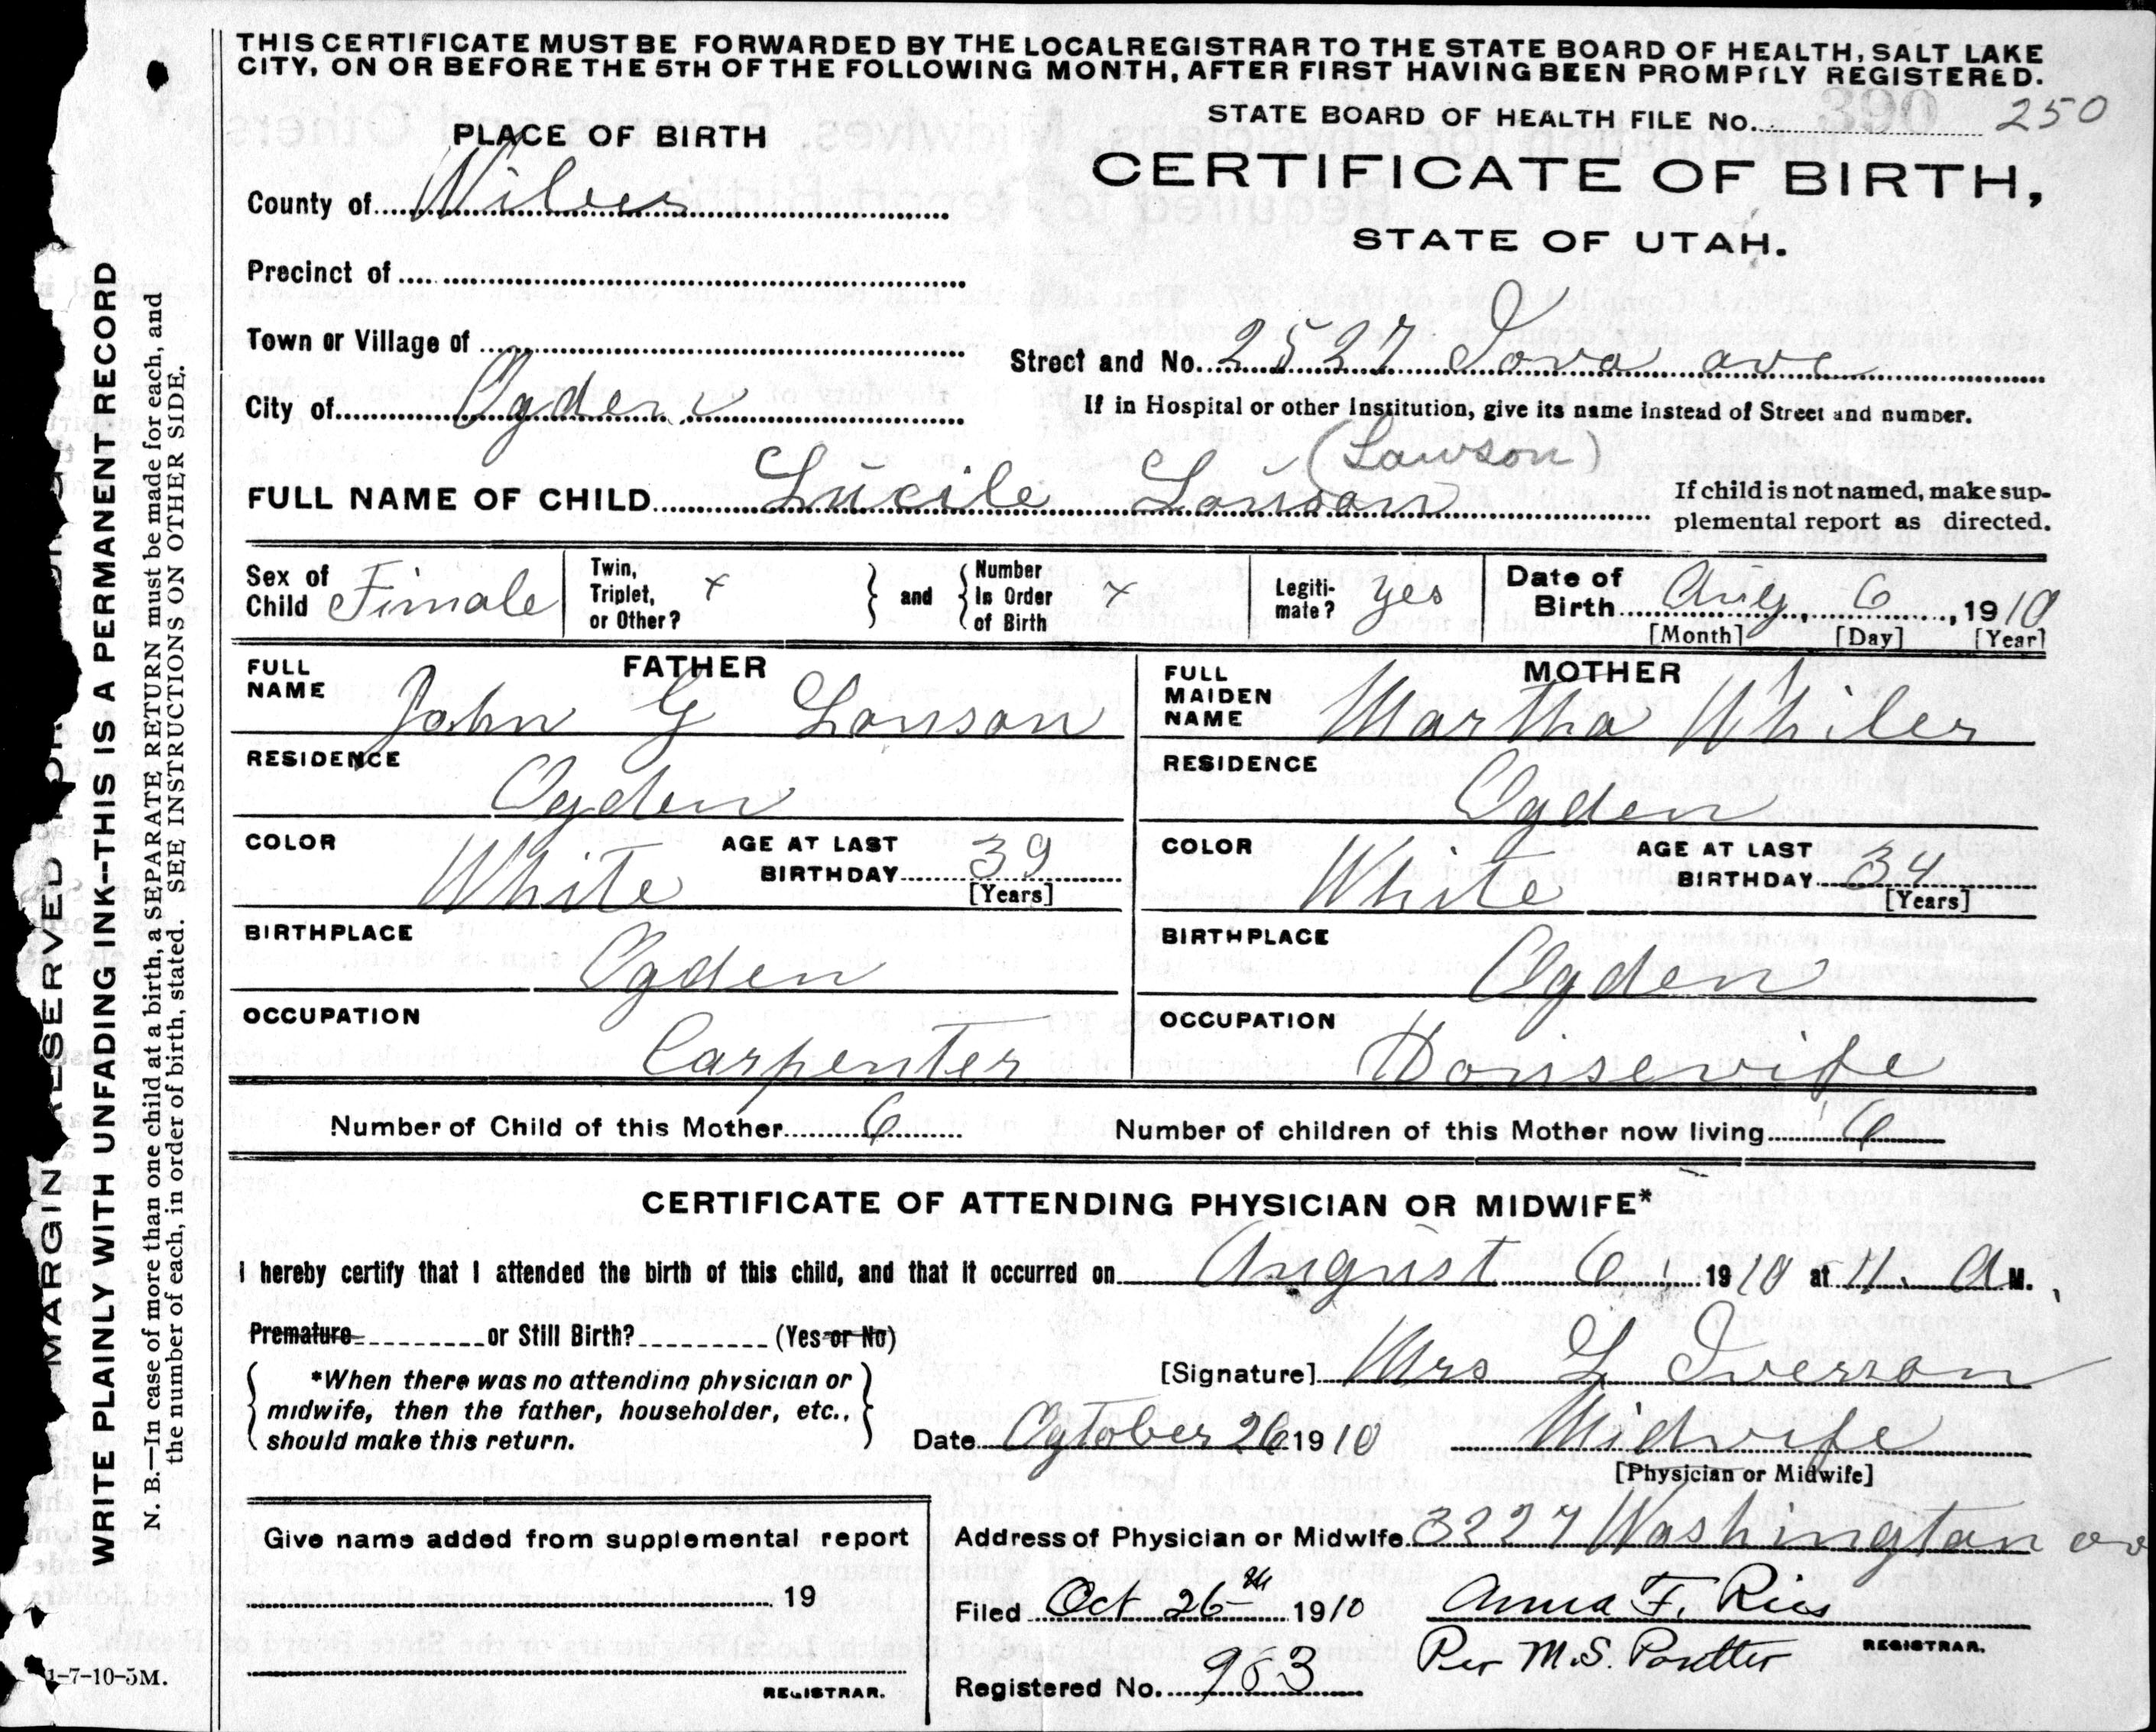 THIS CERTIFICATE MUST BE FORWARDED BY THE LOCAL REGISTRAR TO THE STATE BOARD OF HEALTH, SALT LAKE
CITY, ON OR BEFORE THE 5TH OF THE FOLLOWING MONTH, AFTER FIRST HAVING BEEN PROMPTLY REGISTERED.
STATE BOARD OF HEALTH FILE No. 390 250
PLACE OF BIRTH
CERTIFICATE OF BIRTH,
STATE OF UTAH.
County of
Precinct of
Town or Village of
Street and No. 2527 Iova ave
City of Ogden
If in Hospital or other Institution, give its name instead of Street and number.
(Lawson)
FULL NAME OF CHILD Lucile Louson
If child is not named, make sup-
plemental report as directed.
Sex of Child Fimale
Twin, Triplet, or Other? x
and
Number in Order of Birth x
Legiti-mate? yes
Date of Birth Aug, 6, 1910
[Month] [Day] [Year]
FATHER
FULL NAME John G Louson
RESIDENCE Ogden
COLOR White
AGE AT LAST BIRTHDAY 39
[Years]
BIRTHPLACE Ogden
OCCUPATION Carpenter
MOTHER
FULL MAIDEN NAME Martha Whiler
RESIDENCE Ogden
COLOR White
AGE AT LAST BIRTHDAY 34
[Years]
BIRTHPLACE Ogden
OCCUPATION Housewife
Number of Child of this Mother 6
Number of children of this Mother now living 6
CERTIFICATE OF ATTENDING PHYSICIAN OR MIDWIFE*
I hereby certify that I attended the birth of this child, and that it occurred on August 6, 1910 at 11. A M.
Premature or Still Birth? (Yes or No)
*When there was no attending physician or
midwife, then the father, householder, etc.,
should make this return.
[Signature] Mrs L Iverson
Date Ogtober 26 1910 Midwife
[Physician or Midwife]
Give name added from supplemental report
19
REGISTRAR.
Address of Physician or Midwife 3227 Washington av
Filed Oct 26th 1910 Anna F. Ries
REGISTRAR.
Per M.S.
Registered No. 983
MARGIN RESERVED FOR
WRITE PLAINLY WITH UNFADING INK--THIS IS A PERMANENT RECORD
N. B.—In case of more than one child at a birth, a SEPARATE RETURN must be made for each, and
the number of each, in order of birth, stated. SEE INSTRUCTIONS ON OTHER SIDE.
1-7-10-5M.